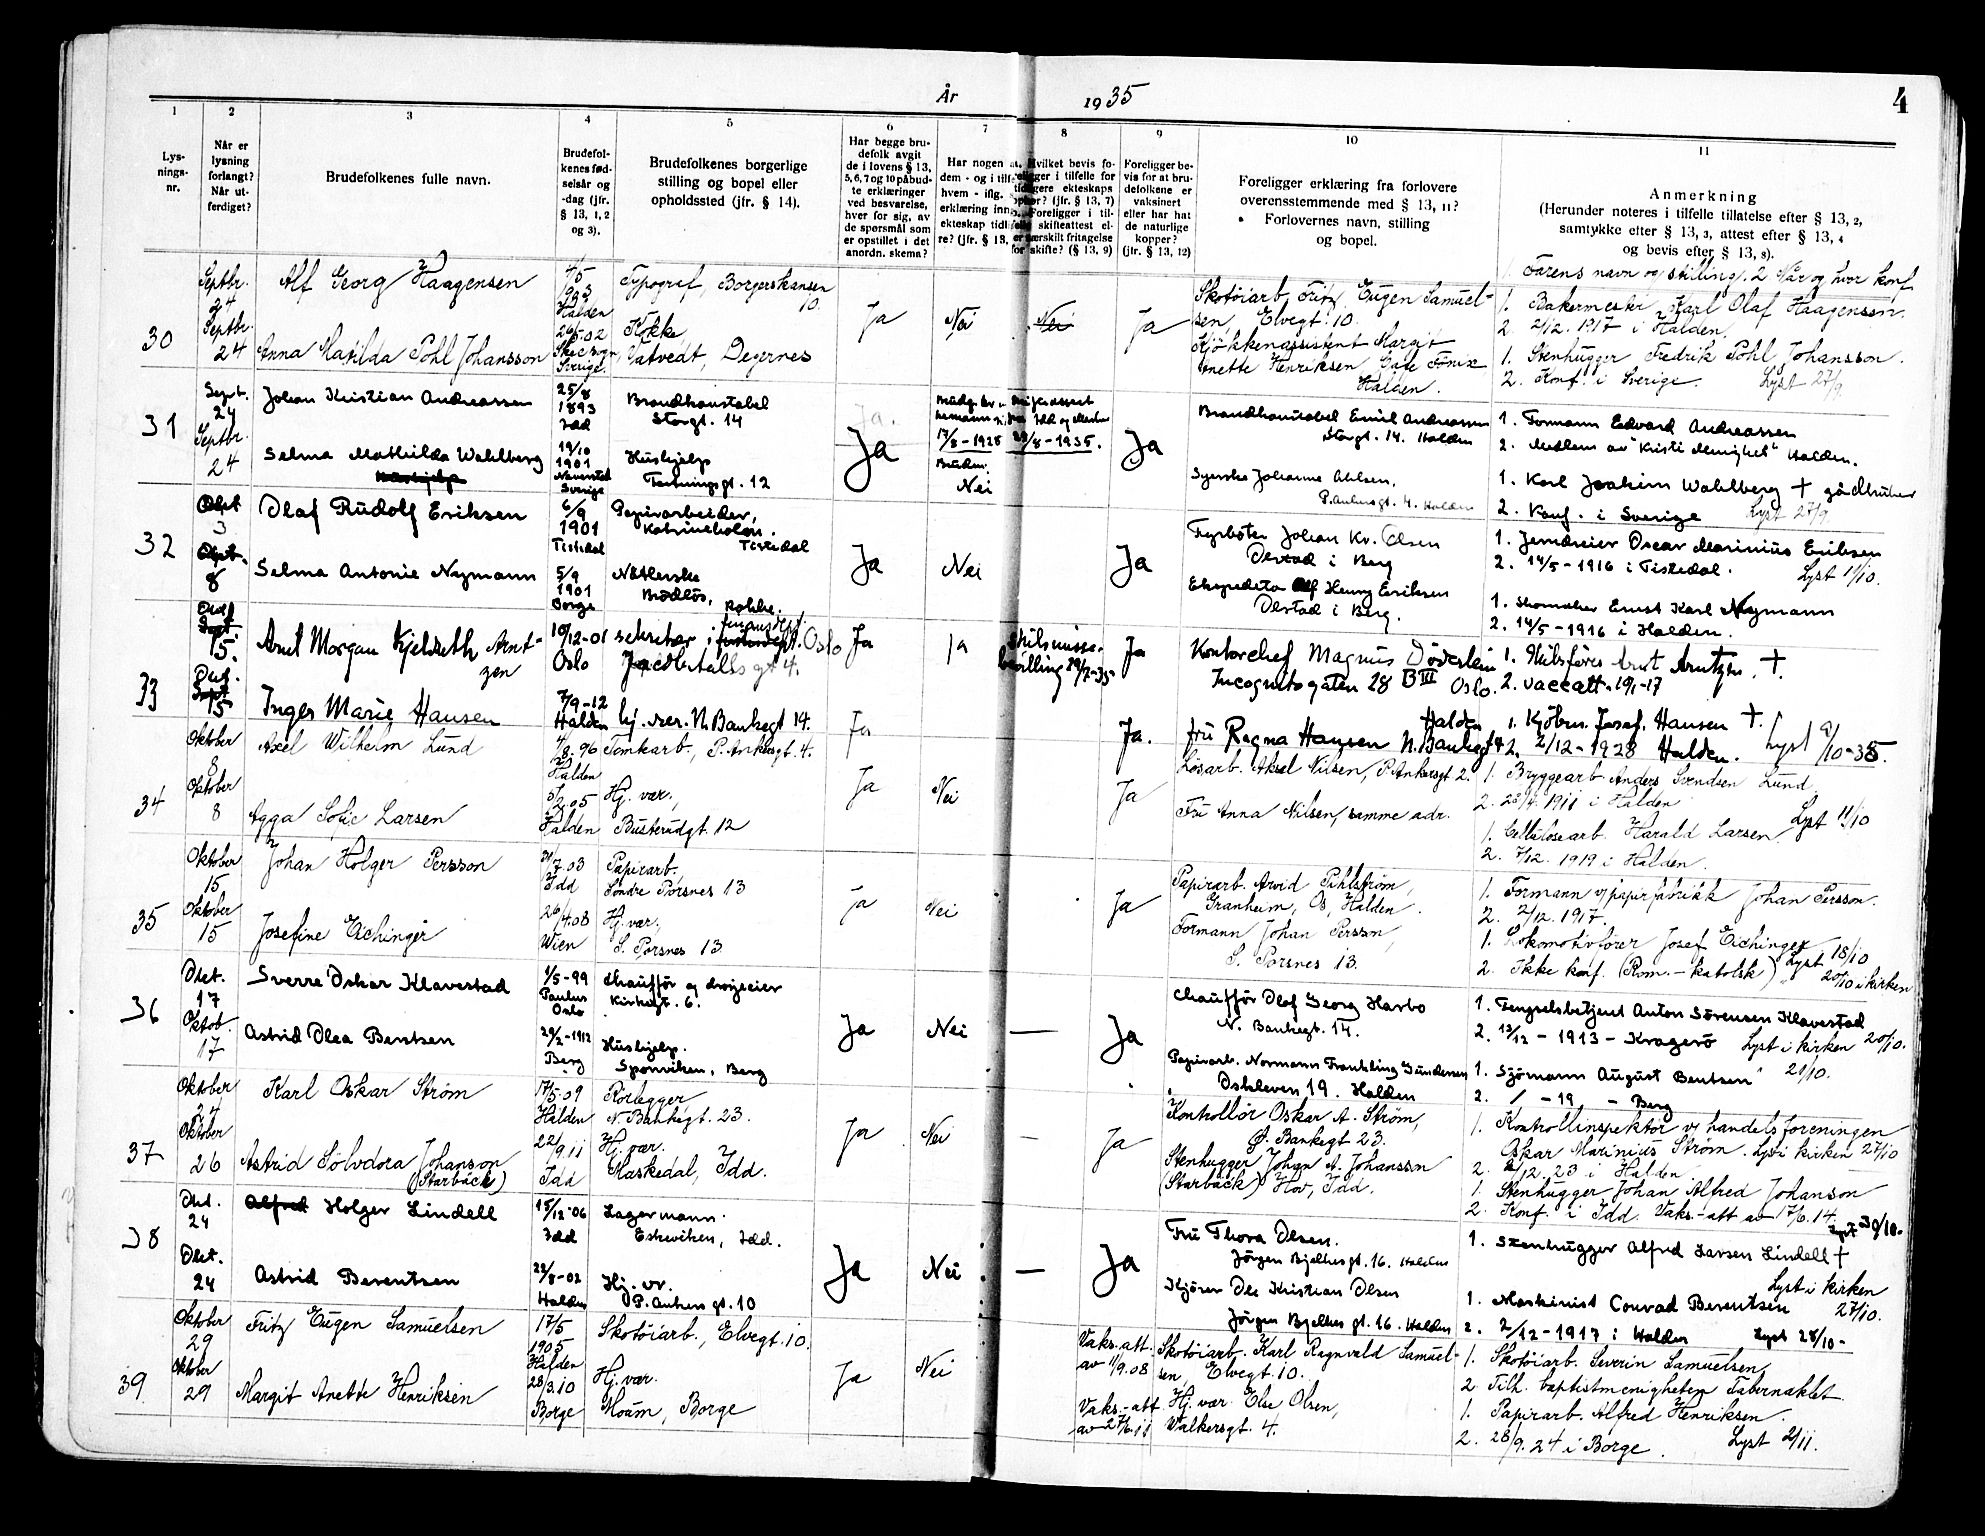 År 1935
4
1 2 3 4 5 6 7 8 9 10 11
Lys-
nings-
nr.
Når er
lysning
forlangt?
Når ut-
ferdiget?
Brudefolkenes fulle navn.
Brudefol-
kenes fød-
selsår og
-dag (jfr.
§ 13, 1, 2
og 3).
Brudefolkenes borgerlige
stilling og bopel eller
opholdssted (jfr. § 14).
Har begge bru-
defolk avgit
de i lovens § 13,
5, 6, 7 og 10 påbud-
te erklæringer
ved besvarelse,
hver for sig, av
de spørsmål som
er opstillet i det
anordn. skema?
Har nogen
dem - og i tilf
hvem - iflg.
erklæring inn
ekteskap tidl
re? (jfr. § 13,
Hvilket bevis fo-
religger i tilfelle for
tidligere ekteskaps
ophør? (jfr. § 13, 7)
Foreligger i til-
felle skifteattest el-
er særskilt fritagelse
for skifte? (§ 13, 9)
Foreligger be-
vis for at bru-
defolkene er
vaksinert
eller har hat
de naturlige
kopper?
(jfr. § 13, 12)
Foreligger erklæring fra forlovere
overensstemmende med § 13, 11?
Forlovernes navn, stilling
og bopel.
Anmerkning
(Herunder noteres i tilfelle tillatelse efter § 13, 2,
samtykke efter § 13, 3, attest efter § 13, 4
og bevis efter § 13, 8).
1. Farens navn og stilling. 2 Når og hvor konf.
30
Septbr.
24
Septbr.
24
Alf Georg Haagensen
Anna Matilda Pohl Johansson
4/5
Halden
26/5.02
Sverige.
Typograf, Borgerskansen
10.
Kokke,
Vatvedt, Degernes
Ja
Nei
Nei
Ja
Skotøiarb. Fritz Eugen Samuel-
sen, Elvegt. 10.
Kjøkkenassistent Margit
Anette Henriksen Gafe Fønix
Halden.
1. Bakermester Karl Olaf Haagensen.
2. 2/12. 1917 i Halden,
1. Stenhugger Fredrik Pohl Johansson.
2. Konf. i Sverige. Lyst 27/9.
31
Sept.
24
Septbr.
24
Johan Kristian Andreassen
Selma Mathilda Wahlberg
25/8
1893
Idd
19/10
1901
Naverstad
Sverige
Brandkonstabel
Storgt. 14
Hushjelp
Tanningsgt. 12
Ja.
Ja
17/8-1928
Bruden:
Nei
Idd og Marker
23/8-1935.
Ja
Brandkonstabel Emil Andreassen
Storgt. 14. Halden
Syerske Johanne Ahlsen,
P.Ankersgt. 4. Halden
1. Formann Edvard Andreassen
2. Medlem av "Kristi Menighet" Halden.
1. Karl Joakim Wahlberg † gårdbruker
2. Konf. i Sverige Lyst 27/9.
32
Okt
3
Okt.
8
Olaf Rudolf Eriksen
Selma Antonie Nymann
6/9
1901
Tistedal
5/9
1901
Borge
Papirarbeider,
Katrineholm.
Tistedal
Nätterske
Brødløs,
Ja
Nei
Ja
Fyrbøter Johan Kr. Olsen
Ørstad i Berg
Ekspeditør Alf Henry Eriksen
Ørstad i Berg.
1. Jerndreier Oscar Marinius Eriksen
2. 14/5-1916 i Tistedal. Lyst 11/10.
1. Skomaker Ernst Karl Nymann
2. 14/5-1916 i Halden.
33
Sept.
15.
Sept
15
Arnt Morgan Kjeldseth Arnt-
zen
Inger Marie Hansen
10/12-01
Oslo
7/9-12
Halden
sekretær i finansdept. Oslo
Jacob Aalls gt 4.
hj. vær. N. Bankegt 14.
Ja
Ja
ja
skilsmisse-
bevilling 29/7-35-
Ja
Ja.
Kontorchef Magnus Döderlein
Incognitogaten 28 B III Oslo.
fru Ragna Hansen N. Bankegt
Halden
1. Skibsfører Arnt Arntzen, †.
2. vaccatt. 19/1-17
1. Kjøbm. Josef Hansen †.
2. 2/12-1928 Halden. Lyst 9/10-35.
34
Oktober
8
Oktober
8
Axel Wilhelm Lund
Agga Sofie Larsen
4/8.96
Halden
5/2.05
Halden
Tomkarb., P. Ankersgt. 4.
Hj. vær.,
Busterudgt. 12
Ja
Nei
Ja
Løsarb. Aksel Nilsen, P. Ankersgt 2.
Fru Anna Nilsen, samme adr.
1. Bryggearb Anders Svendsen Lund
2. 23/4. 1911 i Halden
1. Cellulosearb. Harald Larsen Lyst 11/10
2. 7/12. 1919 i Halden.
35
Oktober
15
Oktober
15
Johan Holger Persson
Josefine Eichinger
21/7.03
Idd
26/4.08
Wien
Papirarb.
Søndre Porsnes 13
Hj. vær.
S. Porsnes 13
Ja
Nei
Ja
Papirarb. Arvid Pihlstrøm,
Granheim, Os, Halden.
Formann Johan Persson,
S. Porsnes 13.
1. Formann v/papirfabrikk Johan Persson.
2. 2/12. 1917.
1. Lokomotivfører Josef Eichinger Lyst 18/10
2. Ikke konf. (Rom.-katolsk) 20/10 i kirken
36
Okt.
17
Oktob.
17
Sverre Oskar Klavestad
Astrid Olea Bentsen
1/5-99
Paulus
Oslo
29/2-1912
Berg
Chauffør og droseeier
Kirkegt. 6.
Hushjelp.
Sponviken, Berg
Ja
Nei
—
Ja
Chauffør Olaf Georg Harbo
N. Bankegt. 14.
Papirarb. Normann Frankling Gundersen
Osleveien 19. Halden
1. Fengselsbetjent Anton Sørensen Klavestad
2. 13/12-1913-Kragerø Lyst i kirken 20/10.
1. Sjømann August Bentsen 21/10.
2. / -19 - Berg
37
Oktober
24
Oktober
26
Karl Oskar Strøm
Astrid Sølvdora Johanson
(Starbäck)
17/5.09
Halden
22/9.11
Idd
Rørlegger
N. Bankegt. 23.
Hj. vær.
Maskedal, Idd.
Ja
Nei
—
Ja
Kontrollør Oskar A. Strøm,
Ø. Bankegt 23.
Stenhugger Johan A. Johansson
(Starbäck) Hov, Idd.
1. Kontrollinspektør v/ handelsforeningen
Oskar Marinius Strøm. Lyst i kirken 27/10
2. 2/12. 23 i Halden
1. Stenhugger Johan Alfred Johanson
2. Konf. i Idd. Vaks.-att av 17/6.14.
Lyst 30/10.
38
Okt.
24
Okt.
24
Alfred Holger Lindell
Astrid Berentsen
15/12-06
Idd
22/8-02
Halden
Lagermann.
Eskeviken, Idd.
Hj. vr.
P. Ankers gt. 10
Ja
Nei
—
Ja
Fru Thora Olsen.
Jørgen Bjelkes gt. 16. Halden
Kjører Ole Kristian Olsen
Jørgen Bjelkes gt. 16. Halden
1. Stenhugger Alfred Larsen Lindell †
Lyst i kirken
27/10.
1. Maskinist Conrad Berentsen
2. 2/12-1917 i Halden Lyst 28/10-
39
Oktober
29
Oktober
29
Fritz Eugen Samuelsen
Margit Anette Henriksen
17/5
1905
Halden
28/3.10
Borge
Skotøiarb., Elvegt. 10.
Hj. vær.
Moum, Borge
Ja
Nei
Vaks.-att.
av 11/9.08
Vaks.-att
av 27/6.11
Skotøiarb. Karl Ragnvald Samuel-
sen, Elvegt 10.
Hj. vær Else Olsen,
Walkersgt. 4.
1. Skotøiarb. Severin Samuelsen,
2 Tilh. baptistmenigheten Tabernaklet
1. Papirarb. Alfred Henriksen.
2. 28/9. 24 i Borge. Lyst 2/11.